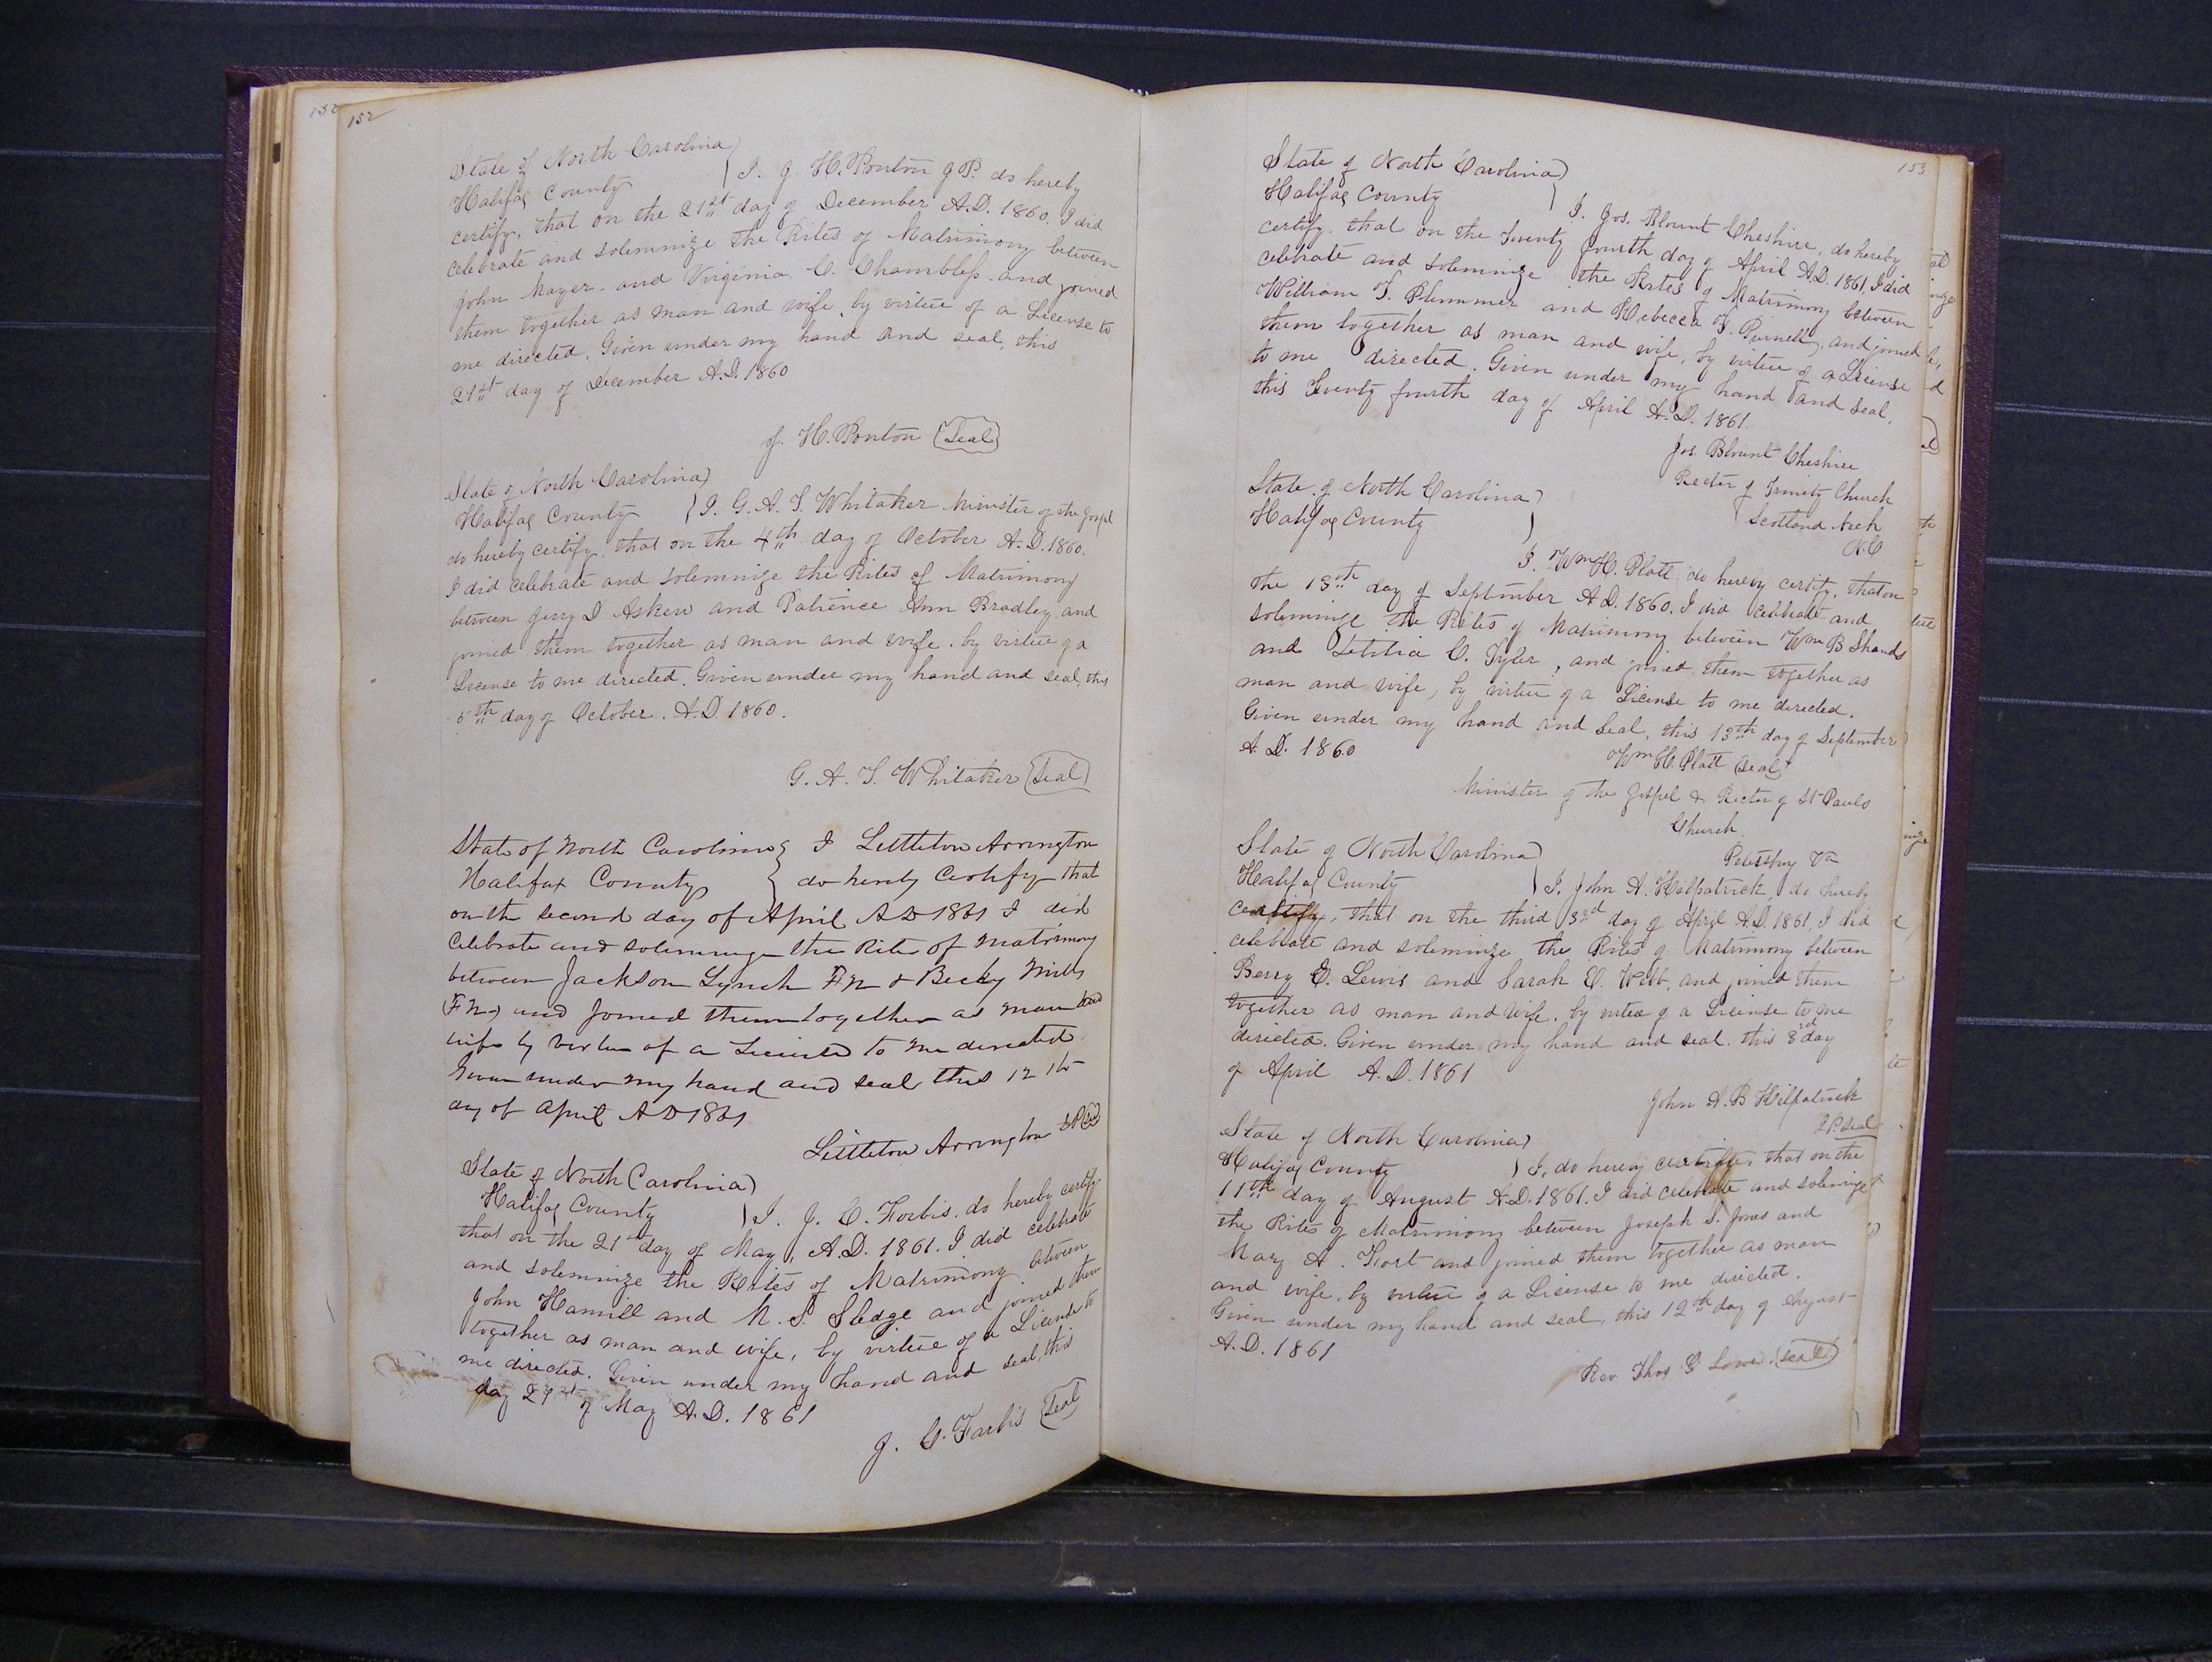 150
152
State of North Carolina)
Halifax County } I. J. H. Ponton J P. do hereby
certify, that on the 21st day of December A.D. 1860. I did
celebrate and solemnize the Rites of Matrimony between
John Mayer and Virginia C. Chambless and joined
them together as man and wife, by virtue of a License to
me directed. Given under my hand and seal, this
21st day of December A.D. 1860
J. H. Ponton (Seal)
State of North Carolina)
Halifax County } I. G. A. T. Whitaker Minister of the Gospel
do hereby certify, that on the 4th day of October A.D. 1860.
I did celebrate and solemnize the Rites of Matrimony
between Jerry D Askew and Patience Ann Bradley and
joined them together as man and wife. by virtue of a
License to me directed. Given under my hand and seal, this
5th day of October. A.D. 1860.
G. A. T. Whitaker (Seal)
State of North Carolina } I Littleton Arrington
Halifax County } do hereby Certify that
on the second day of April AD 1861 I did
Celebrate and solemnize the Rites of Matrimony
between Jackson Lynch F N & Becky Mills
(F N) and Joined them together as man and
wife by virtue of a License to me directed
Given under my hand and seal this 12 th
day of April AD 1861
Littleton Arrington JP (Seal)
State of North Carolina)
Halifax County ) I. J. C. Forbis. do hereby certify
that on the 21st day of May, A.D. 1861. I did celebrate
and solemnize the Rites of Matrimony between
John Hamill and M. S. Sledge and joined them
together as man and wife, by virtue of a License to
me directed. Given under my hand and seal, this
day 21st of May A.D. 1861
J. C. Forbis (Seal)
153
State of North Carolina)
Halifax County } I. Jos. Blount Cheshire, do hereby
certify. that on the Twenty fourth day of April A.D. 1861, I did
celebrate and solemnize the Rites of Matrimony between
William T. Plummer and Rebecca F. Purnell, and joined
them together as man and wife, by virtue of a License
to me directed. Given under my hand and seal,
this Twenty fourth day of April A.D. 1861.
Jos. Blount Cheshire
Rector of Trinity Church
Scotland Neck
N.C
State of North Carolina)
Halifax County )
I. Wm H. Platt do hereby certify. that on
the 13th day of September A.D. 1860. I did celebrate and
solemnize the Rites of Matrimony between Wm B Shands
and Letitia C. Tyler, and joined them together as
man and wife, by virtue of a License to me directed.
Given under my hand and Seal, this 13th day of September
A.D. 1860
Wm H. Platt (Seal)
Minister of the Gospel & Rector of St Pauls
Church
Petersburg Va
State of North Carolina)
Halifax County ) I, John A. Kilpatrick, do hereby
certify, that on the third 3rd day of April A.D. 1861, I did
celebrate and solemnize the Rites of Matrimony between
Berry E. Lewis and Sarah E. Webb, and joined them
together as man and wife. by virtue of a License to me
directed. Given under my hand and seal. this 3rd day
of April A.D. 1861
John A. B Kilpatrick
J.P. Seal
State of North Carolina)
Halifax County ) I, do hereby certify, that on the
11th day of August A.D. 1861. I did celebrate and solemnize
the Rites of Matrimony between Joseph S. Jones and
Mary A. Fort and joined them together as man
and wife, by virtue of a License to me directed.
Given under my hand and seal, this 12th day of August
A.D. 1861
Rev Thos G Lowe. (seal)